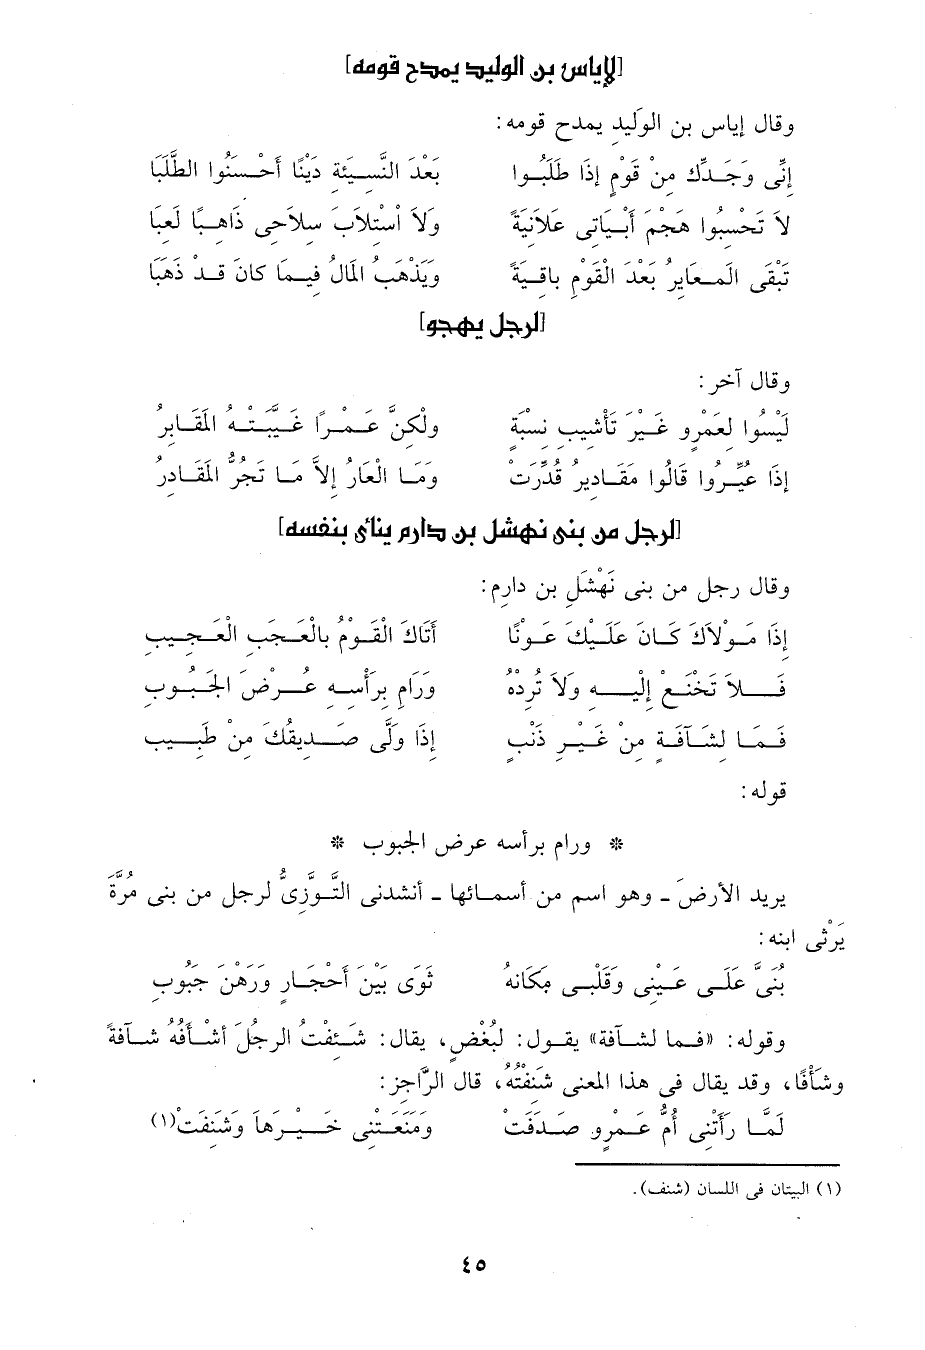 [لإياس بن الوليد يمدح قومه]
وقال إياس بن الوَليدِ يمدح قومه:
إنِّى وَجَـدِّك مِنْ قَوْمٍ إذا طَلَبُـوا بَعْدَ النَّسِـيئَةِ دَيْنًا أحْـسَنُوا الطَّلَبَا
لاَ تَحْسِبُوا هَجْمَ أبْـيَاتِى عَلاَنيَةً وَلاَ أسْتِلاَبَ سِلاَحِى ذَاهِـبًا لَعِبَا
تَبْقَى المَـعَايرُ بَعْدَ الْقَوْمِ باقِيَةً وَيَذْهَبُ المَالُ فِيـمَا كانَ قَـدْ ذَهَبَا
[لرجل يهجو]
وقال آخر:
لَيْسُوا لعَمْرٍو غَـيْرَ تَأْشيبِ نِسْبَةٍ ولْكِنَّ عَـمْـرًا غَـيَّبَتْـهُ المَقَـابِرُ
إذَا عُيِّـرُوا قَالُوا مَقَـاديرُ قُدِّرَتْ وَمَـا الْعَارُ إلاَّ مَـا تَجُرُّ المَقَـادِرُ
[لرجل من بنى نهشل بن دارم ينأى بنفسه]
وقال رجل من بنى نَهْشَلِ بن دارِم:
إذَا مَـوْلاَكَ كَـانَ عَلَـيْكَ عَـوْنًا أتَاكَ الْقَـوْمُ بالْعَـجَبِ الْعَـجِـيبِ
فَـلاَ تَخْنَـعْ إلَيْـهِ وَلاَ تُرِدْهُ وَرَامِ بِرَأْسِـهِ عُـرْضَ الْجَـبُـوبِ
فَـمَـا لشَـآفَـةٍ مِنْ غَـيْـرِ ذَنْبٍ إذَا وَلَّى صَـدِيقُكَ مِنْ طَبِـيبِ
قوله:
* ورام برأسه عرض الجبوب *
يريد الأرضَ ـ وهو اسم من أسمـائها ـ أنشدنى التَّوَّزِىُّ لرجل من بنى مُرَّةَ
يَرْثِى ابنه:
بُنَىَّ عَلَـى عَـيْنِى وَقَلْبِـى مَكَانهُ ثَوَى بَيْنَ أحْجَـارٍ وَرَهْنَ جَبُوبِ
وقوله: «فـما لشـآفة» يقـول: لبُغْضٍ، يقال: شَـئِفْتُ الرجُلَ أشْـأفُهُ شـآفةً
وشَأْفًا، وقد يقال فى هذا المعنى شَنِفْتُهُ، قال الرَّاجز:
لَمَّـا رَأَتْنِى أُمُّ عَـمْـرٍو صَدَفَتْ وَمَنَعَـتْنِى خَـيْـرَهَا وَشَنِفَتْ(١)
(١) البيتان فى اللسان (شنف).
٤٥